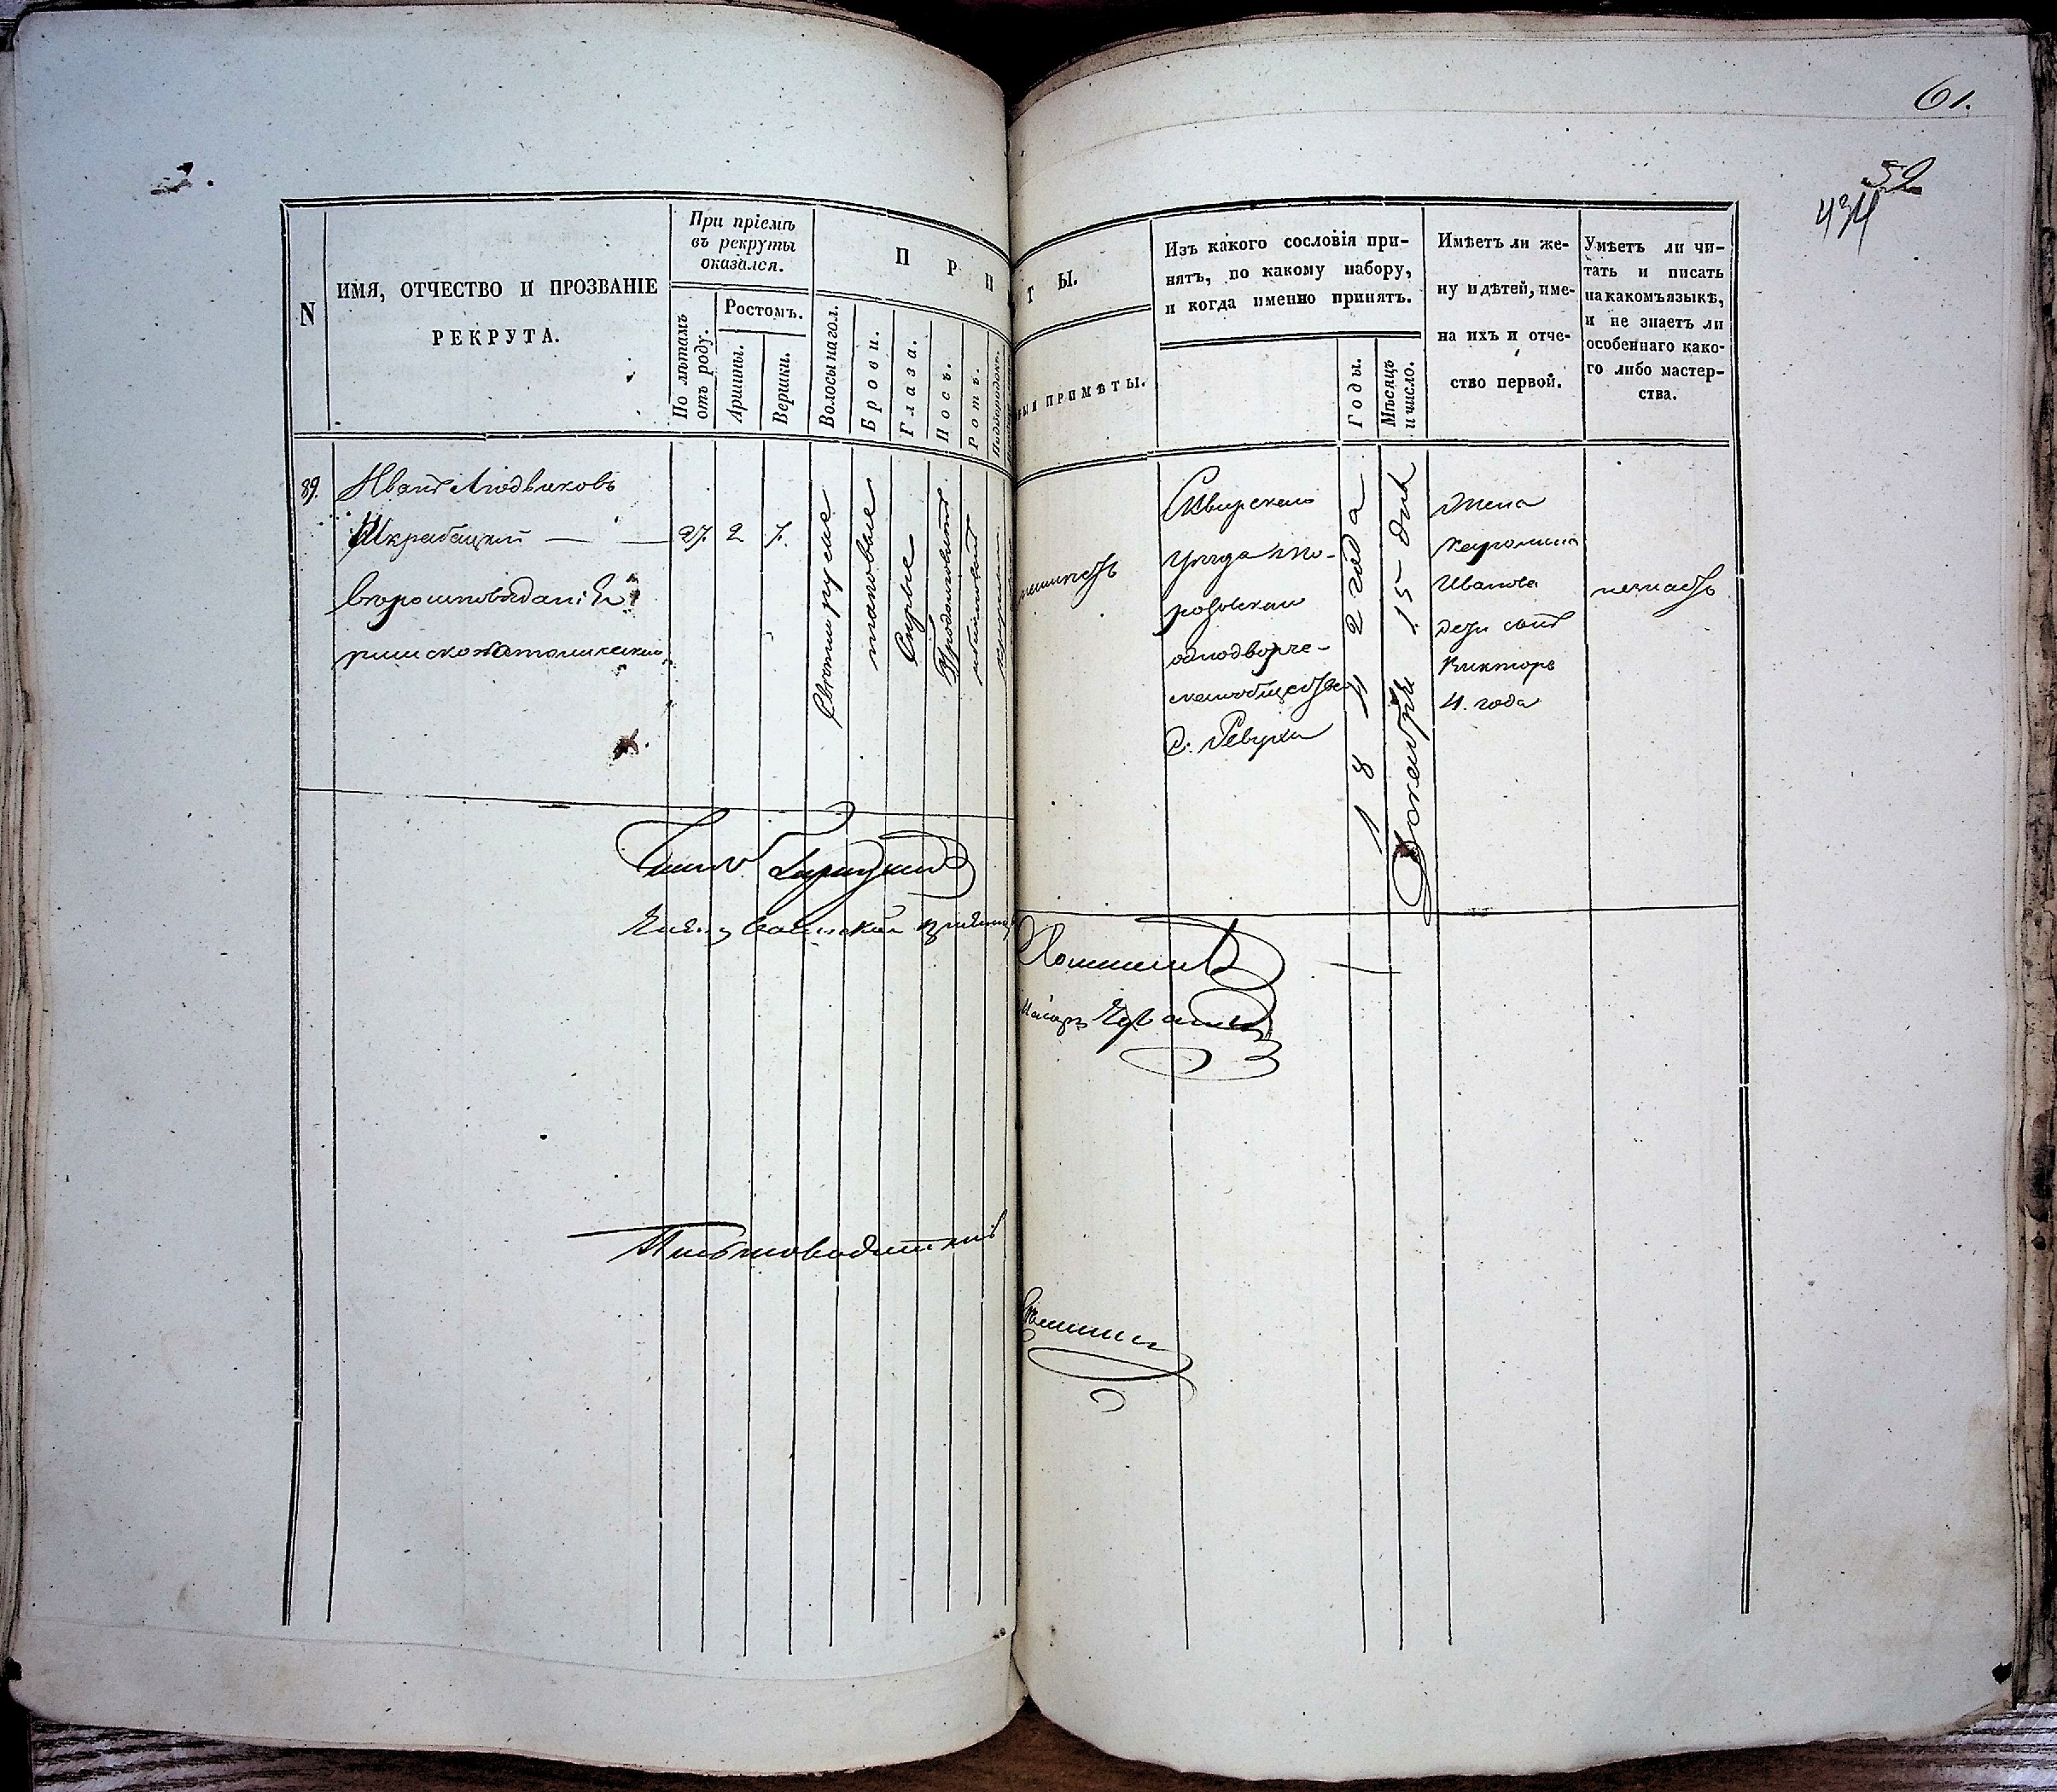 61.
59
434
N
ИМЯ, ОТЧЕСТВО И ПРОЗВАНІЕ
РЕКРУТА.
При пріемѣ
въ рекруты
оказался.
По лѣтамъ
отъ роду.
Ростомъ.
Аршины.
Вершки.
П Р И
Волосы на гол.
Брови.
Глаза.
Носъ.
Ротъ.
Подбородокъ.
Т Ы.
ЫЯ ПРИМѢТЫ.
Изъ какого сословія при-
нятъ, по какому набору,
и когда именно принятъ.
Годы.
Мѣсяцъ
и число.
Имѣетъ ли же-
ну и дѣтей, име-
на ихъ и отче-
ство первой.
Умѣетъ ли чи-
тать и писать
на какомъ языкѣ,
и не знаетъ ли
особеннаго како-
го либо мастер-
ства.
89.
Иванъ Людвиковъ
Шкрабацкій
вѣроисповѣданія
римскокатолическаго
27
2
7.
Свѣтлорусые
таковые
Сѣрые
Продолговатый
Сквирскаго
уѣзда
однодворче-
скаго общества
с. Ревухи
1842 года
Декабря 15 дня
жена
Каролина
Иванова
дети сынъ
Викторъ
4. года
Военный пріемщикъ
Маіоръ
Письмоводитель